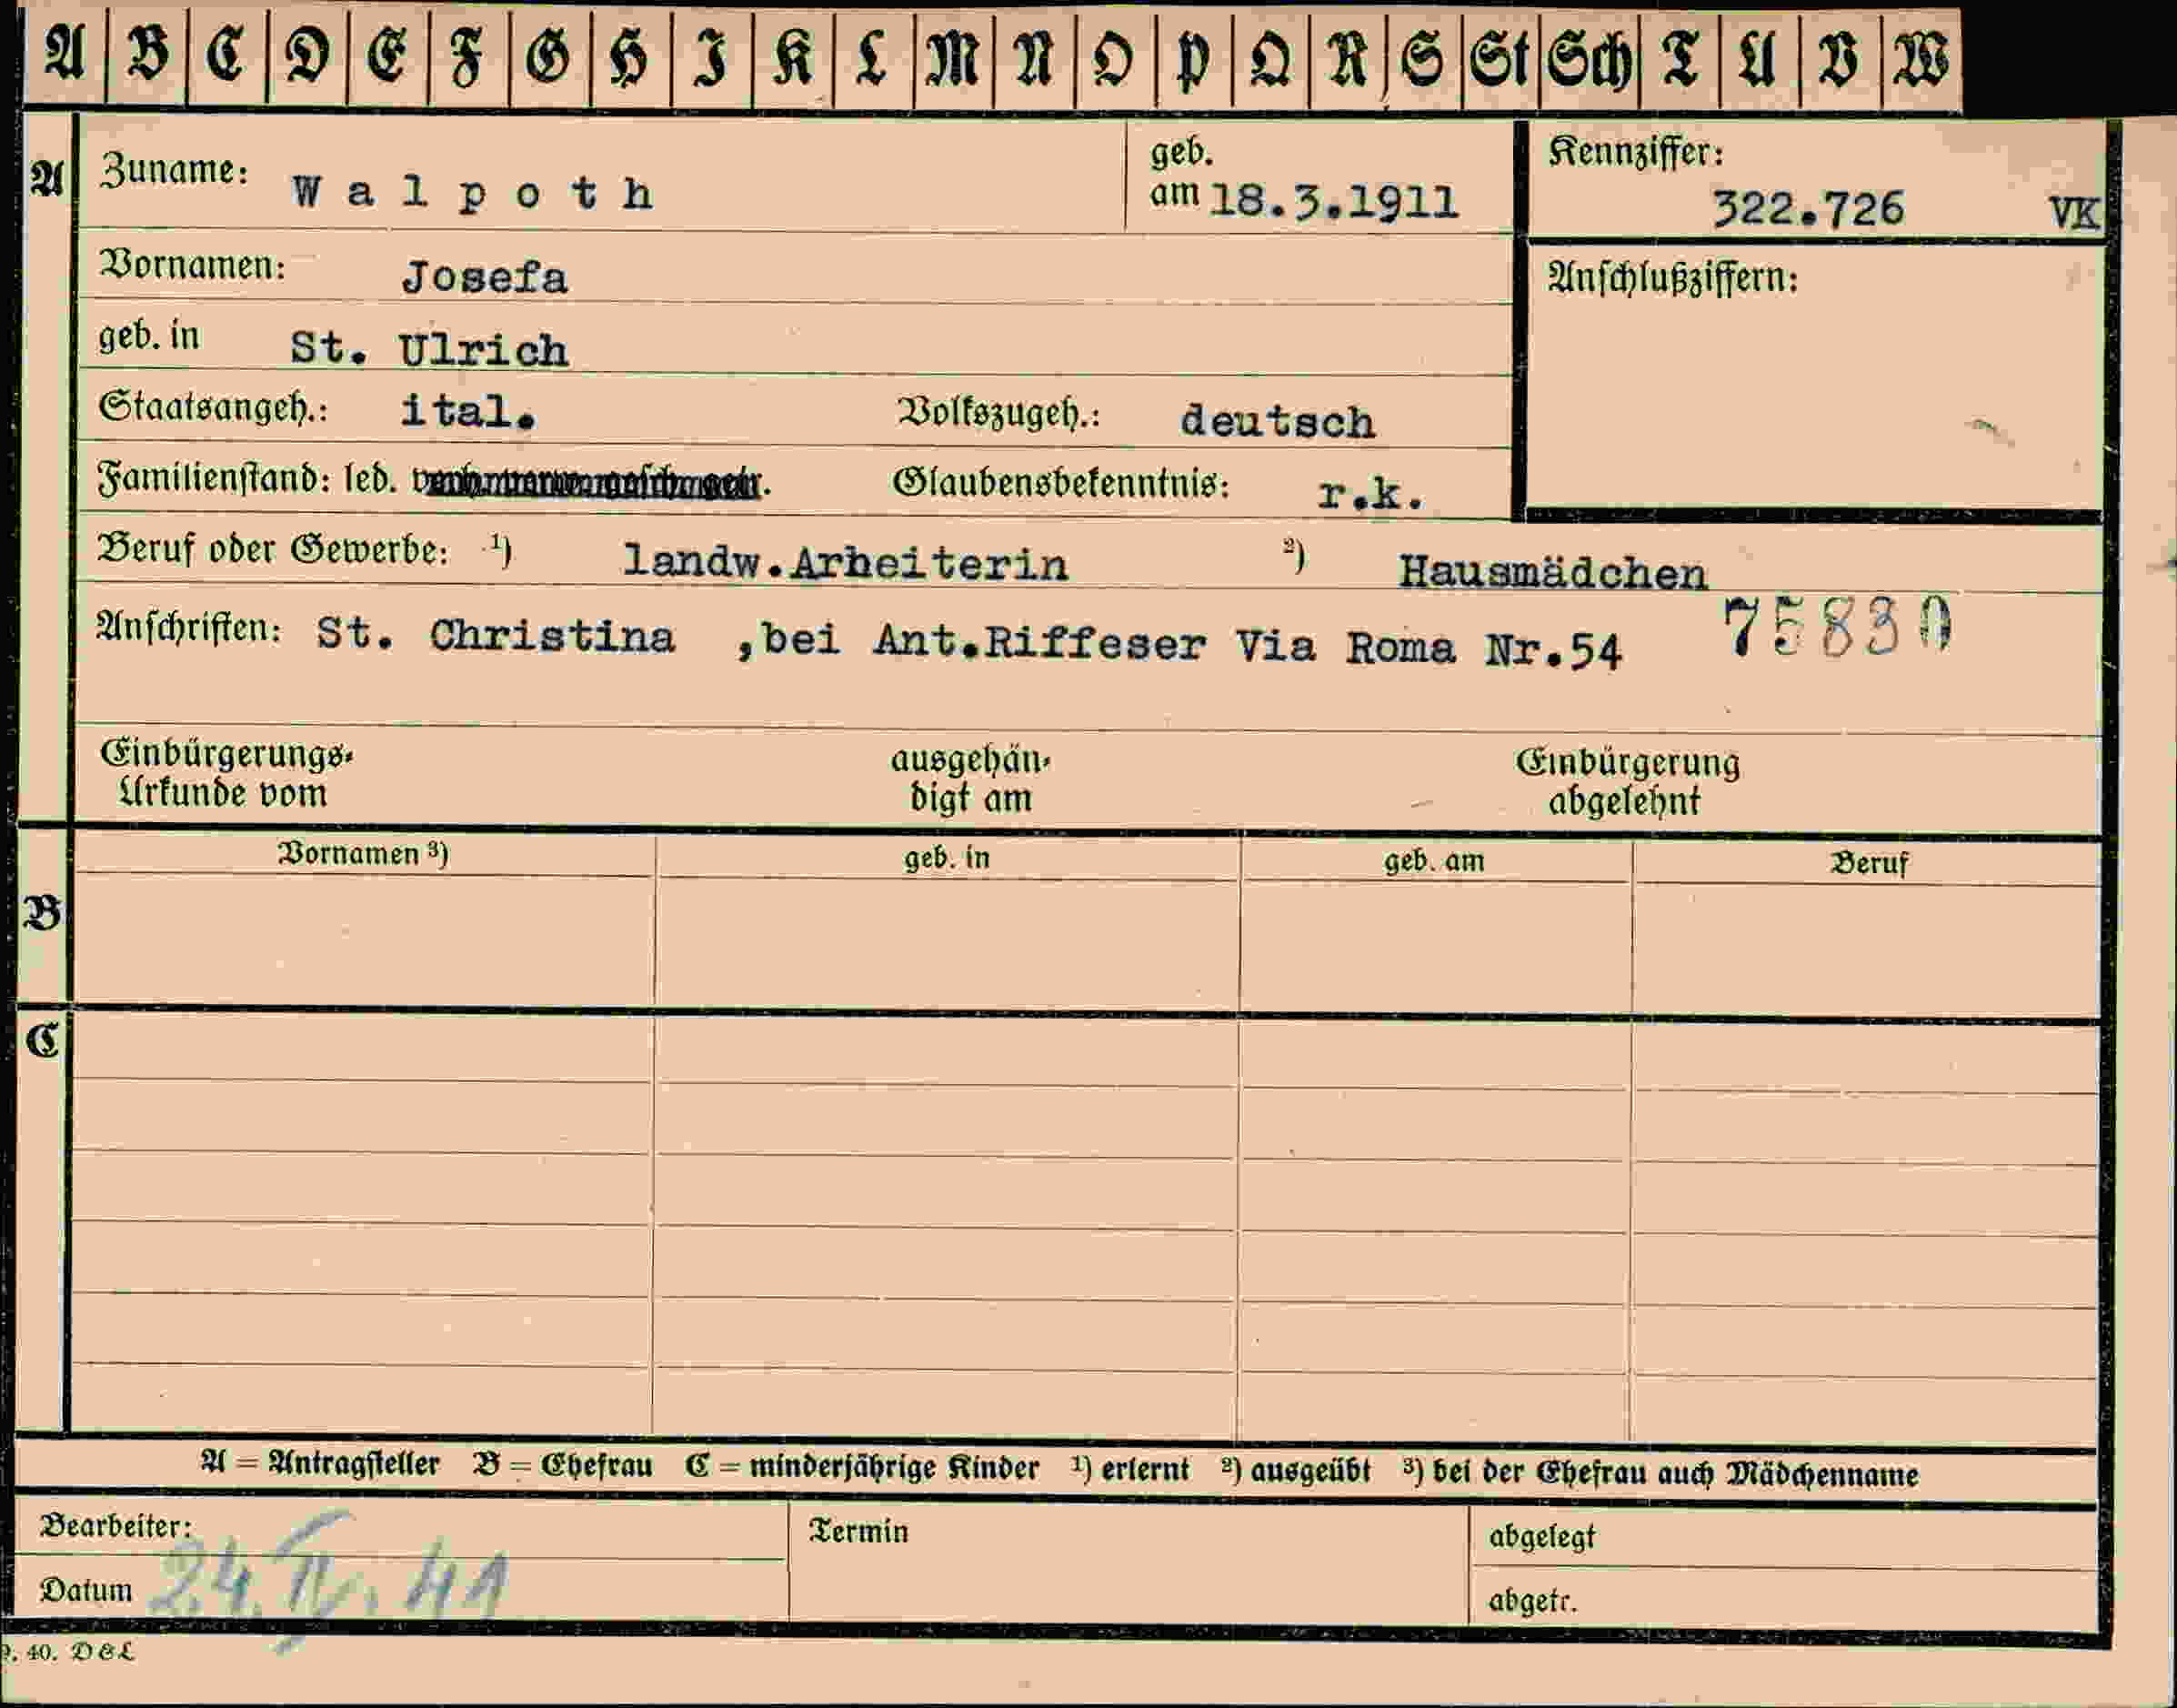 A B C D E F G H I K L M N O P Q R S St Sch T U V W
A Zuname: Walpoth geb. am 18.3.1911 Kennziffer: 322.726 VK
Vornamen: Josefa Anschlußziffern:
geb. in St. Ulrich
Staatsangeh.: ital. Volkszugeh.: deutsch
Familienstand: led. Glaubensbekenntnis: r.k.
Beruf oder Gewerbe: ¹) landw.Arheiterin ²) Hausmädchen
Anschriften: St. Christina ,bei Ant.Riffeser Via Roma Nr.54 75830
Einbürgerungs- ausgehän- Einbürgerung
Urkunde vom digt am abgelehnt
Vornamen ³) geb. in geb. am Beruf
B
C
A = Antragsteller B = Ehefrau C = minderjährige Kinder ¹) erlernt ²) ausgeübt ³) bei der Ehefrau auch Mädchenname
Bearbeiter: Termin abgelegt
Datum 24. IV. 41 abgetr.
9. 40. D&L